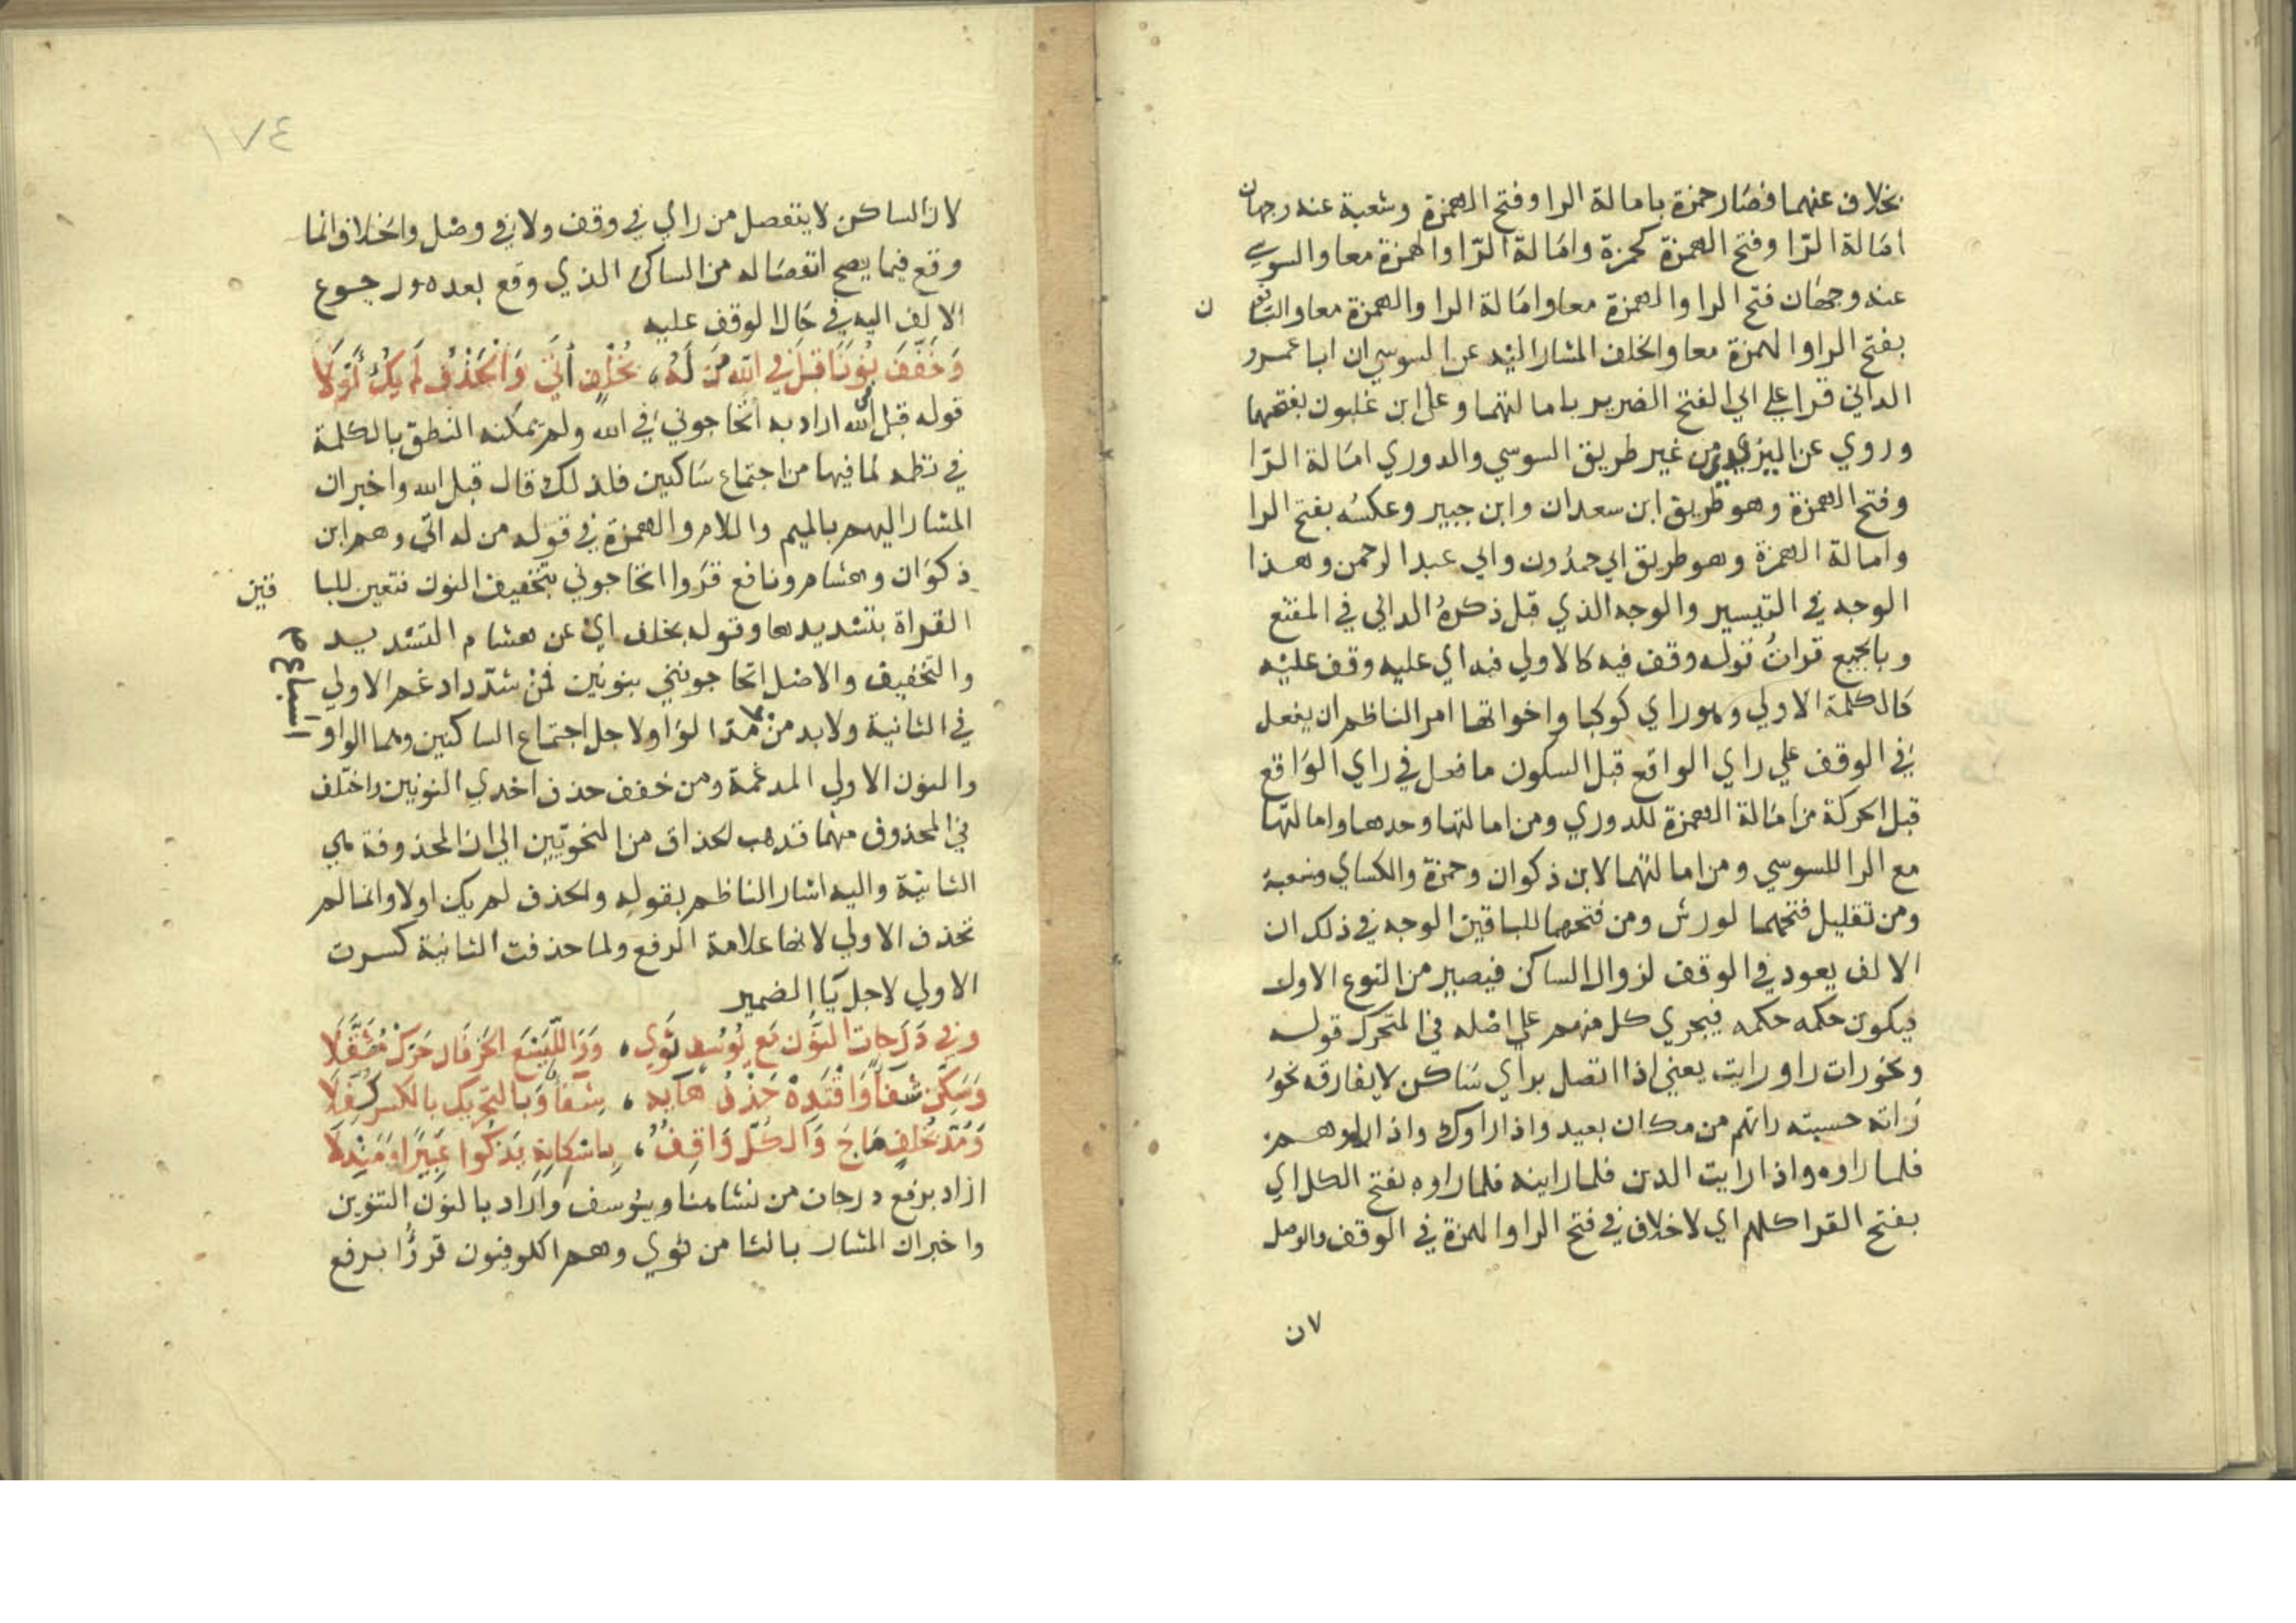 بخلاف عنهما فصار حمزة بامالة الرا وفتح الهمزة وشعبة عنه وجهان
امالة الرا وفتح الهمزة كحمزة وامالة الرا والهمزة معا والسوسي
عنه وجهان فتح الرا والهمزة معا وامالة الرا والهمزة معا والباقون
بفتح الرا والهمزة معا والخلف المشار اليه عن السوسي ان ابا عمرو
الداني قرا علي ابي الفتح الضرير بامالتهما وعلي ابن غلبون بفتحهما
وروي عن اليزيدي من غير طريق السوسي والدوري امالة الرا
وفتح الهمزة وهو طريق ابن سعدان وابن جبير وعكسه بفتح الرا
وامالة الهمزة وهو طريق ابي حمدون وابي عبد الرحمن وهذا
الوجه في التيسير والوجه الذي قبل ذكره الداني في المقنع
وبالجميع قرات قوله وقف فيه كالاولي فيه اي عليه وقف عليه
كالكلمة الاولي وهو راي كوكبا واخواتها امر الناظم ان يفعل
في الوقف علي راي الواقع قبل السكون ما فعل في راي الواقع
قبل الحركة من امالة الهمزة للدوري ومن امالتها وحدها وامالتها
مع الرا للسوسي ومن امالتهما لابن ذكوان وحمزة والكساي وشعبة
ومن تقليل فتحهما لورش ومن فتحهما للباقين الوجه في ذلك ان
الالف يعود في الوقف لزوال الساكن فيصير من النوع الاول
فيكون حكمه حكمه فيجري كل منهم علي اصله في المتحرك قوله
ونحو رات راو رايت يعني اذا اتصل براي ساكن لا يفارقه نحو
راته حسبته راتهم من مكان بعيد واذا راوك واذا راوهم
فلما راوه واذا رايت الذين فلما راينه فلما راوه بفتح الكل اي
بفتح القرا كلهم اي لا خلاف في فتح الرا والهمزة في الوقف والوصل
لان
١٧٤
لان الساكن لا ينفصل من راي في وقف ولا في وصل والخلاف انما
وقع فيما يصح انفصاله من الساكن الذي وقع بعده ورجوع
الالف اليه في حال الوقف عليه
وَخَفَّفَ نُونًا قَبْلَ فِي اللهِ مَنْ لَهُ، بِخُلْفٍ أَتَى وَالْحَذْفُ لَمْ يَكُ أَوَّلَا
قوله قبل في الله اراد به اتحاجوني في الله ولم يمكنه النطق بالكلمة
في نظمه لما فيها من اجتماع ساكنين فلذلك قال قبل الله واخبر ان
المشار اليهم بالميم واللام والهمزة في قوله من له اتى وهم ابن
ذكوان وهشام ونافع قروا اتحاجوني بتخفيف النون فتعين للبا
قين
القراة بتشديدها وقوله بخلف اي عن هشام التشديد
والتخفيف والاصل اتحاجونني بنونين فمن شدد ادغم الاولي
في الثانية ولا بد من مد الواو لاجل اجتماع الساكنين وهما الواو
اشباع
والنون الاولي المدغمة ومن خفف حذف احدي النونين واختلف
في المحذوف منهما فذهب الحذاق من النحويين الي ان المحذوفة هي
الثانية واليه اشار الناظم بقوله والحذف لم يكن اولا وانما لم
تحذف الاولي لانها علامة الرفع ولما حذفت الثانية كسرت
الاولي لاجل يا الضمير
وَفِي دَرَجَاتِ النُّونُ مَعَ يُوسُفٍ ثَوَى، وَوَاللَّيْسَعَ الْحَرْفَانِ حَرِّكْ مُثَقِّلَا
وَسَكِّنْ شِفَاءً وَاقْتَدِهْ حَذْفُ هَائِهِ، شِفَاءً وَبِالتَّحْرِيكِ بِالْكَسْرِ كُفِّلَا
وَمُدَّ بِخُلْفٍ مَاجَ وَالْكُلُّ وَاقِفٌ، بِإِسْكَانِهِ يَذْكُوا عَبِيرًا وَمَنْدَلَا
اراد برفع درجات من نشا هنا وبيوسف واراد بالنون التنوين
واخبر ان المشار بالثا من ثوي وهم الكوفيون قروا برفع